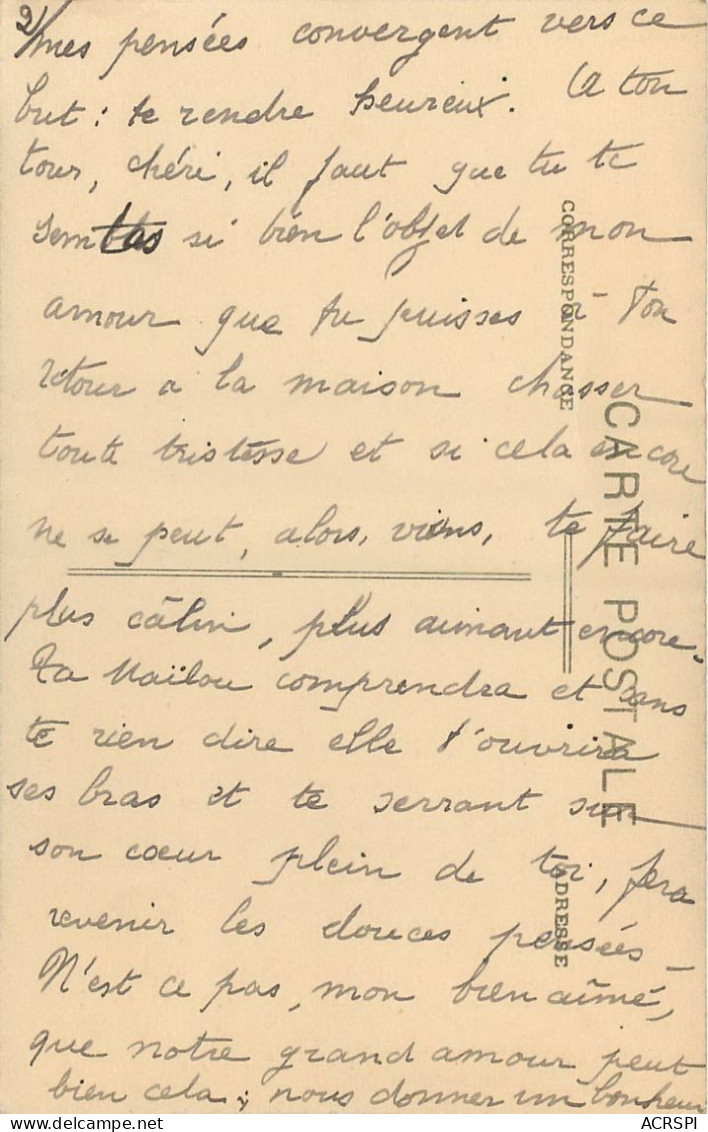 2/
mes pensées convergent vers ce
but : te rendre heureux. A ton
tour, chéri, il faut que tu te
sembles si bien l'objet de mon
amour que tu puisses à ton
retour a la maison chasser
toute tristesse et si cela encore
ne se peut, alors, viens, te faire
plus câlin, plus aimant encore.
Ta Maïlou comprendra et sans
te rien dire elle t'ouvrira
ses bras et te serrant sur
son cœur plein de toi, fera
revenir les douces pensées —
N'est ce pas, mon bien aimé,
que notre grand amour peut
bien cela ; nous donner un bonheur
CORRESPONDANCE
CARTE POSTALE
ADRESSE
ACRSPI